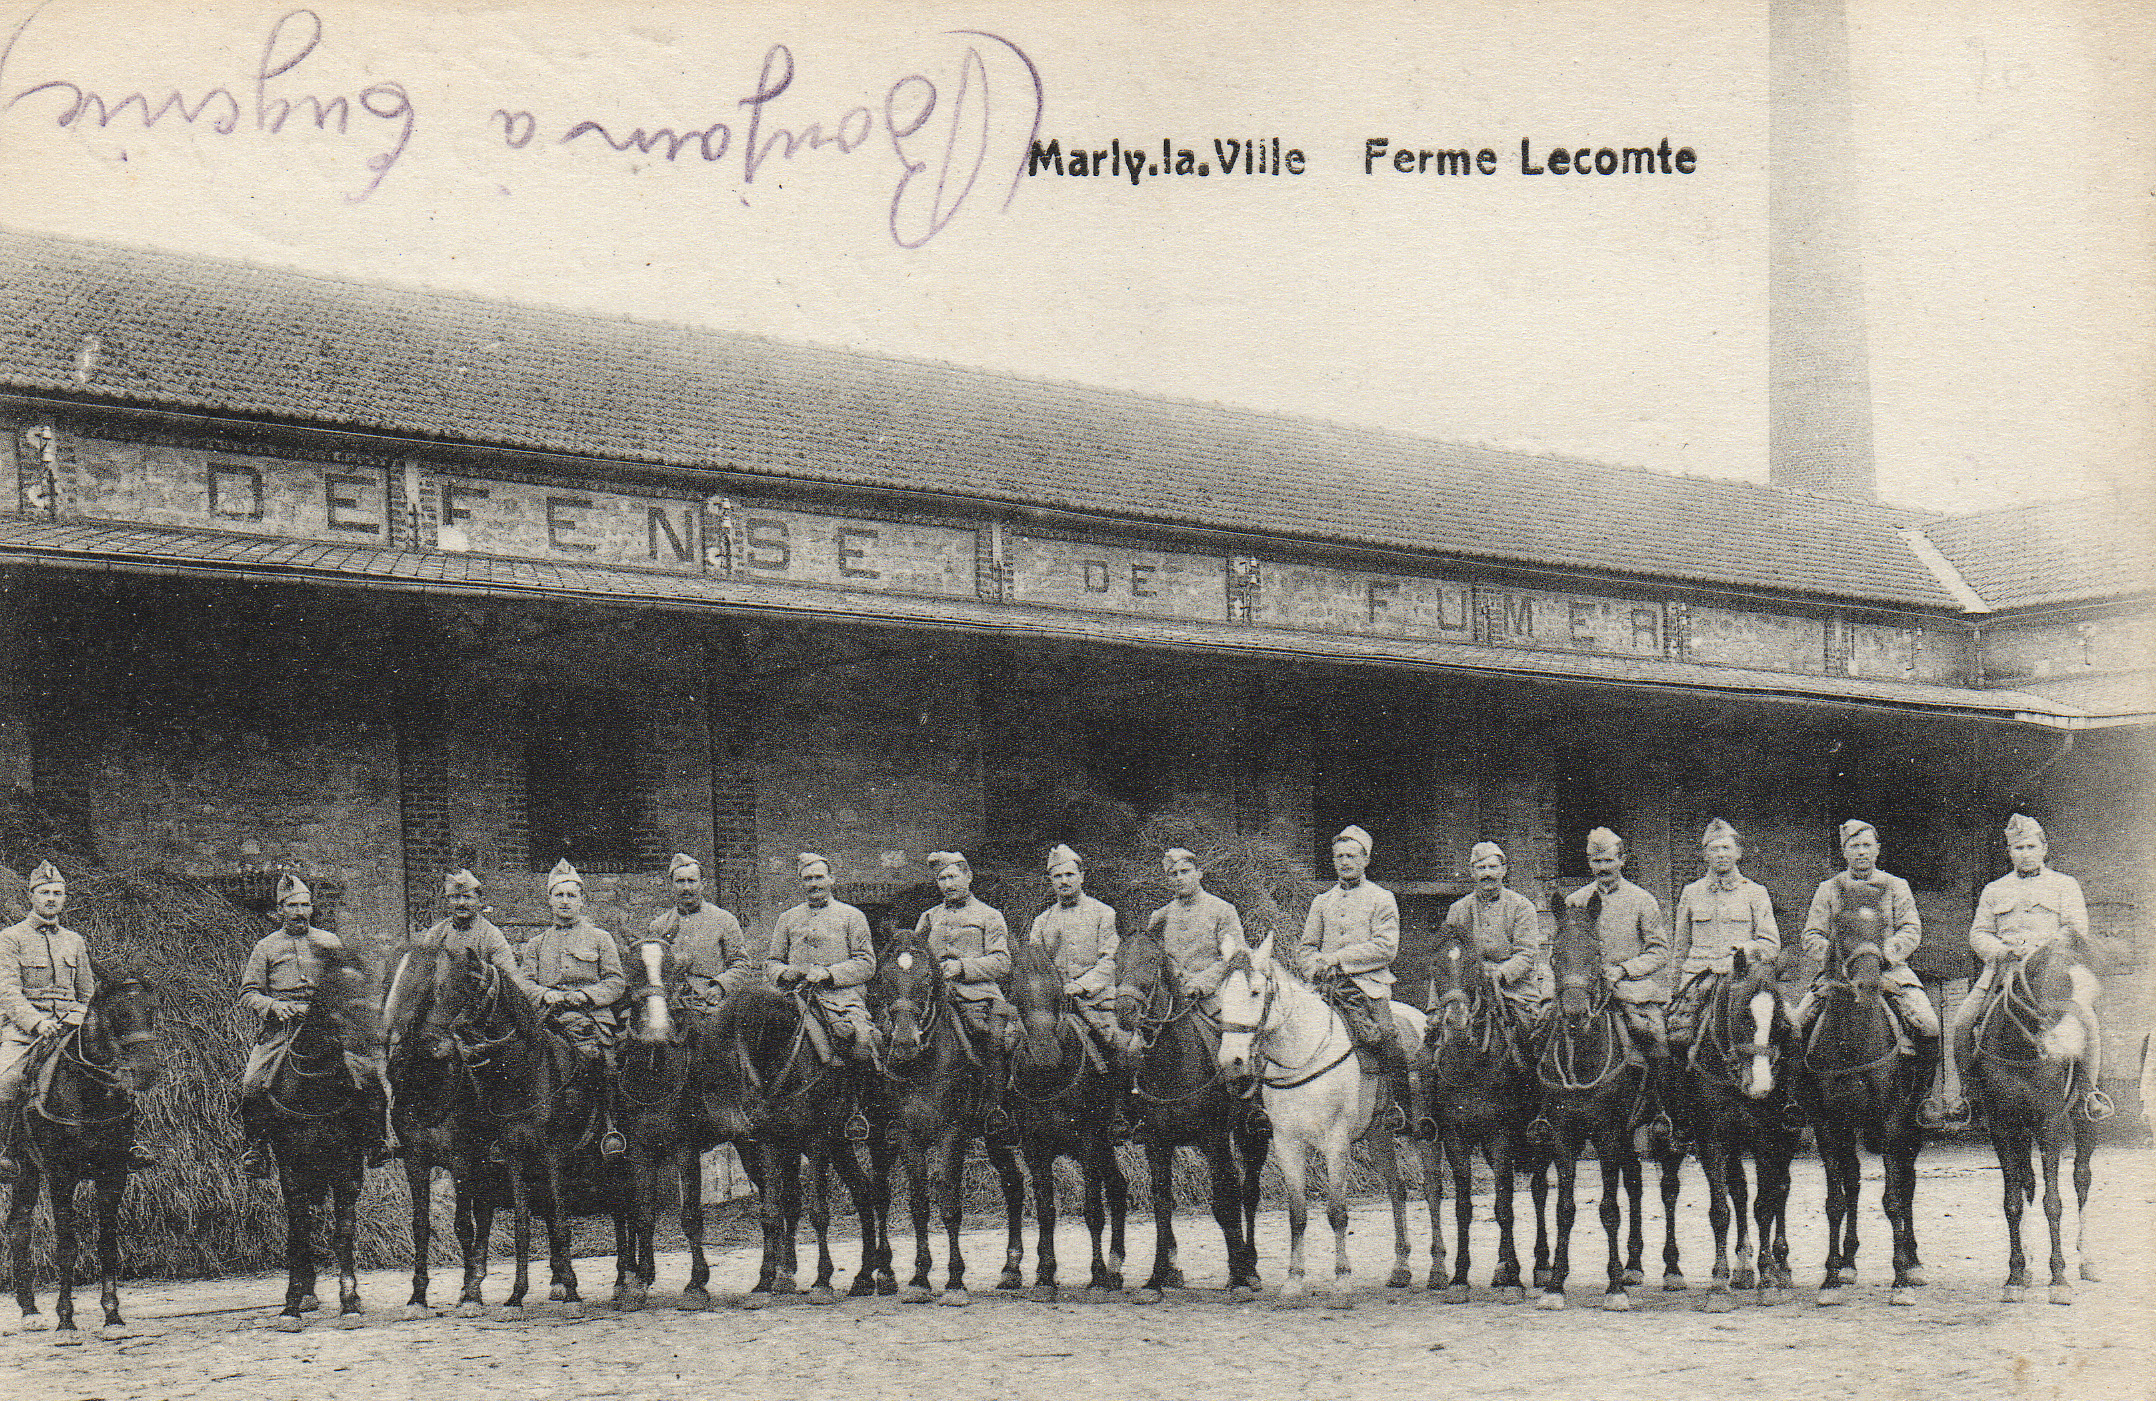 (Bonjour à Eugenie)
Marly.la.Ville Ferme Lecomte
DEFENSE DE FUMER